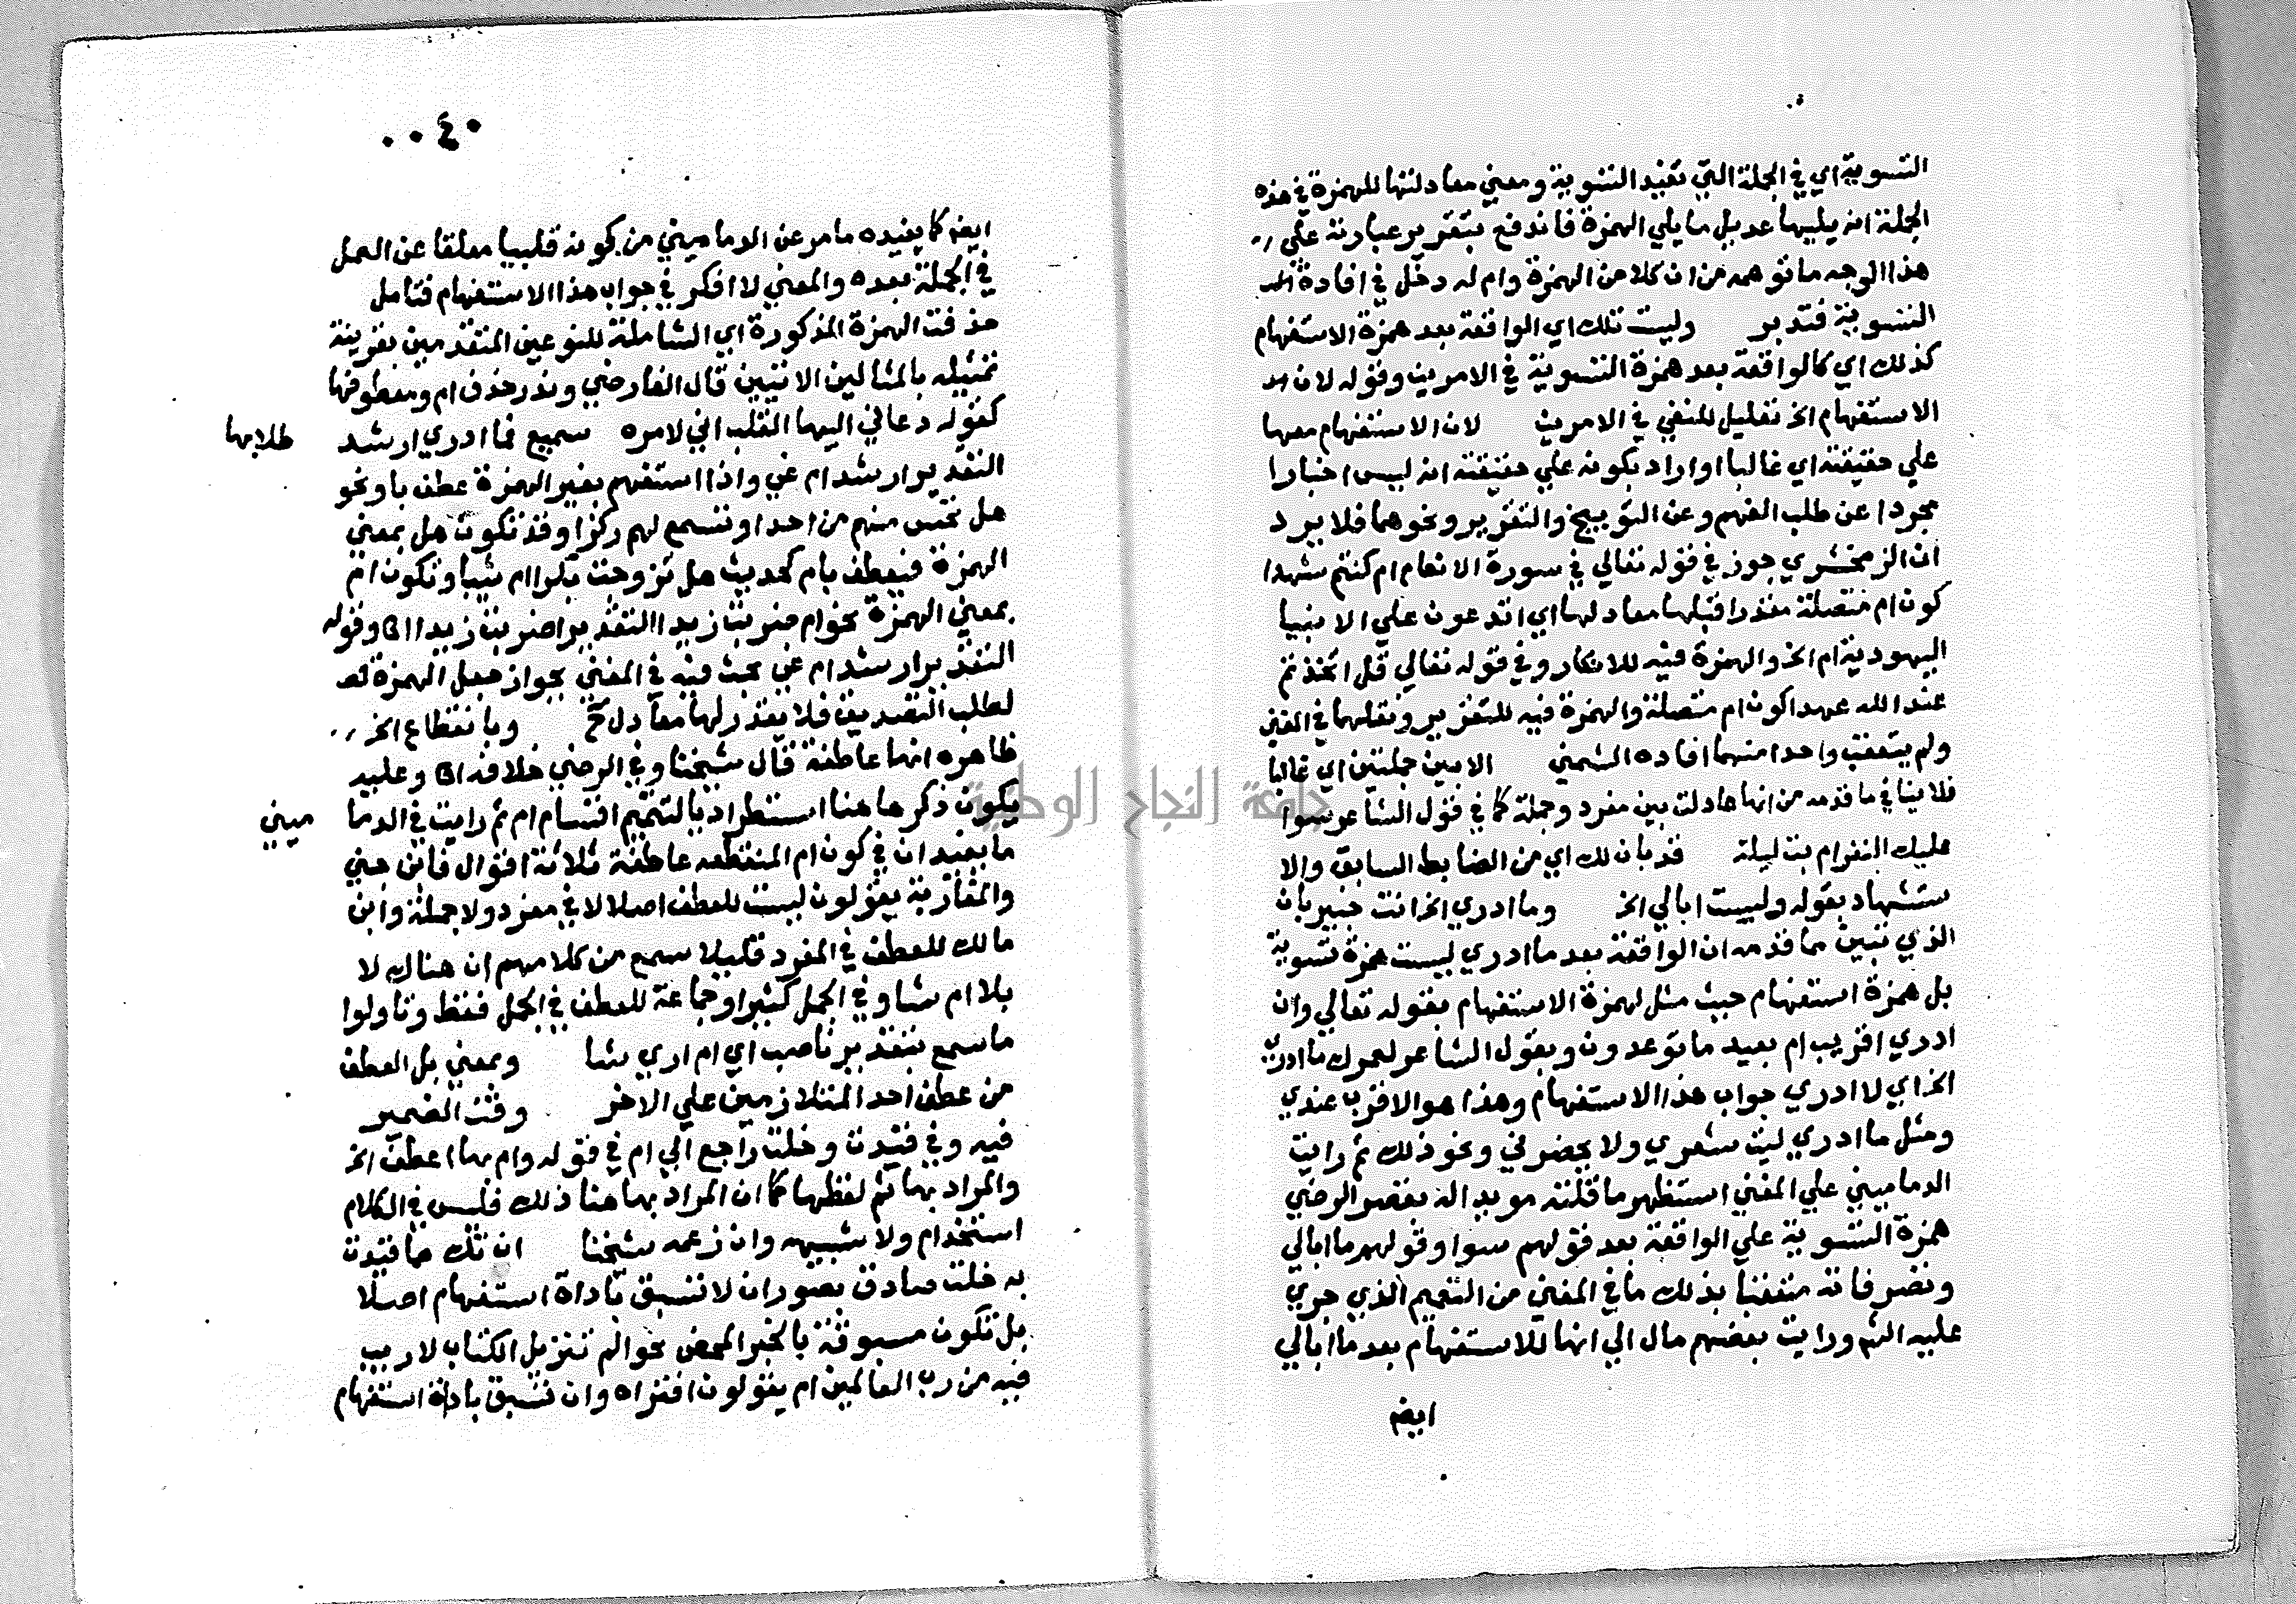 التسوية اي في الجملة التي تفيد التسوية ومعني معادلتها للهمزة في هذه
الجملة انه يليها عديل ما يلي الهمزة فاندفع بتقرير عبارته علي
هذا الوجه ما توهمه من ان كلا من الهمزة وام له دخل في افادة
التسوية فتدبر وليست تلك اي الواقعة بعد همزة الاستفهام
كذلك اي كالواقعة بعد همزة التسوية في الامرين وقوله لان
الاستفهام الخ تعليل للنفي في الامرين لان الاستفهام معها
علي حقيقته اي غالبا او اراد بكونه علي حقيقته انه ليس اخبارا
مجردا عن طلب الفهم وعن التوبيخ والتقرير ونحوهما فلا يرد
ان الزمخشري جوز في قوله تعالي في سورة الانعام ام كنتم شهدا
كون ام متصلة مقدرا قبلها معادلها اي اتدعون علي الانبيا
اليهودية ام الخ والهمزة فيه للانكار وفي قوله تعالي قل اتخذتم
عند الله عهدا كون ام متصلة والهمزة فيه للتقرير ونقلهما في المغني
ولم يتعقب واحدا منهما افاده الشمني الا بين جملتين اي غالبا
فلا ينافي ما قدمه من انها عادلت بين مفرد وجملة كما في قول الشاعر سوا
عليك النفر ام بت ليلة قد بان لك اي من الضابط السابق والا
ستشهاد بقوله ولست ابالي الخ وما ادري الخ انت خبير بان
الذي تبين مما قدمه ان الواقعة بعد ما ادري ليست همزة تسوية
بل همزة استفهام حيث مثل لهمزة الاستفهام بقوله تعالي وان
ادري اقريب ام بعيد ما توعدون وبقول الشاعر لعمرك ما ادري
الخ اي لا ادري جواب هذا الاستفهام وهذا هو الاقرب عندي
ومثل ما ادري ليت شعري ولا يحضرني ونحو ذلك ثم رايت
الدماميني علي المغني استظهر ما قلته مويدا له بقصر الرضي
همزة التسوية علي الواقعة بعد قولهم سوا وقولهم ما ابالي
وتصرفاته متعقبا بذلك ما في المغني من التعميم الذي جري
عليه الشم ورايت بعضهم مال الي انها للاستفهام بعد ما ابالي
ايضا
٠٠٤٠
ايضا كما يفيده ما مر عن الدماميني من كونه قلبيا معلقا عن العمل
في الجملة بعده والمعني لا افكر في جواب هذا الاستفهام فتامل
حذفت الهمزة المذكورة اي الشاملة للنوعين المتقدمين بقرينة
تمثيله بالمثالين الاتيين قال الفارضي وندر حذف ام ومعطوفها
كقوله دعاني اليها القلب اني لامره سميع فما ادري ارشد طلابها
التقدير ارشد ام غي واذا استفهم بغير الهمزة عطف باو نحو
هل تحس منهم من احد او تسمع لهم ركزا وقد تكون هل بمعني
الهمزة فيعطف بام كحديث هل تزوجت بكرا ام ثيبا وتكون ام
بمعني الهمزة نحو ام ضربت زيدا التقدير اضربت زيدا اه وقوله
التقدير ارشد ام غي بحث فيه في المغني بجواز جعل الهمزة
لطلب التصديق فلا يقدر لها معادل ح وبانقطاع الخ
ظاهره انها عاطفة قال شيخنا وفي الرضي خلافه اه وعليه
يكون ذكرها هنا استطراد بالتتميم اقسام ام ثم رايت في الدما ميني
ما يفيد ان في كون ام المنقطعه عاطفة ثلاثة اقوال فابن جني
والمغاربة يقولون ليست للعطف اصلا لا في مفرد ولا جملة وابن
مالك للعطف في المفرد قليلا سمع من كلامهم ان هناك لا
بلا ام شا وفي الجمل كثيرا وجماعة للعطف في الجمل فقط وتاولوا
ما سمع بتقدير ناصب اي ام اري شا وبمعني بل العطف
من عطف احد المتلازمين علي الاخر وقت الضمير
فيه وفي قيدت وخلت راجع الي ام في قوله وام بها اعطف الخ
والمراد بها ثم لفظها كما ان المراد بها هنا ذلك فليس في الكلام
استخدام ولا شبهه وان زعمه شيخنا ان تك مما قيدت
به خلت صادق بصور ان لا تسبق باداة استفهام اصلا
بل تكون مسبوقة بالخبر المحض نحو الم تنزيل الكتاب لا ريب
فيه من رب العالمين ام يقولون افتراه وان تسبق باداة استفهام
جامعة النجاح الوطنية